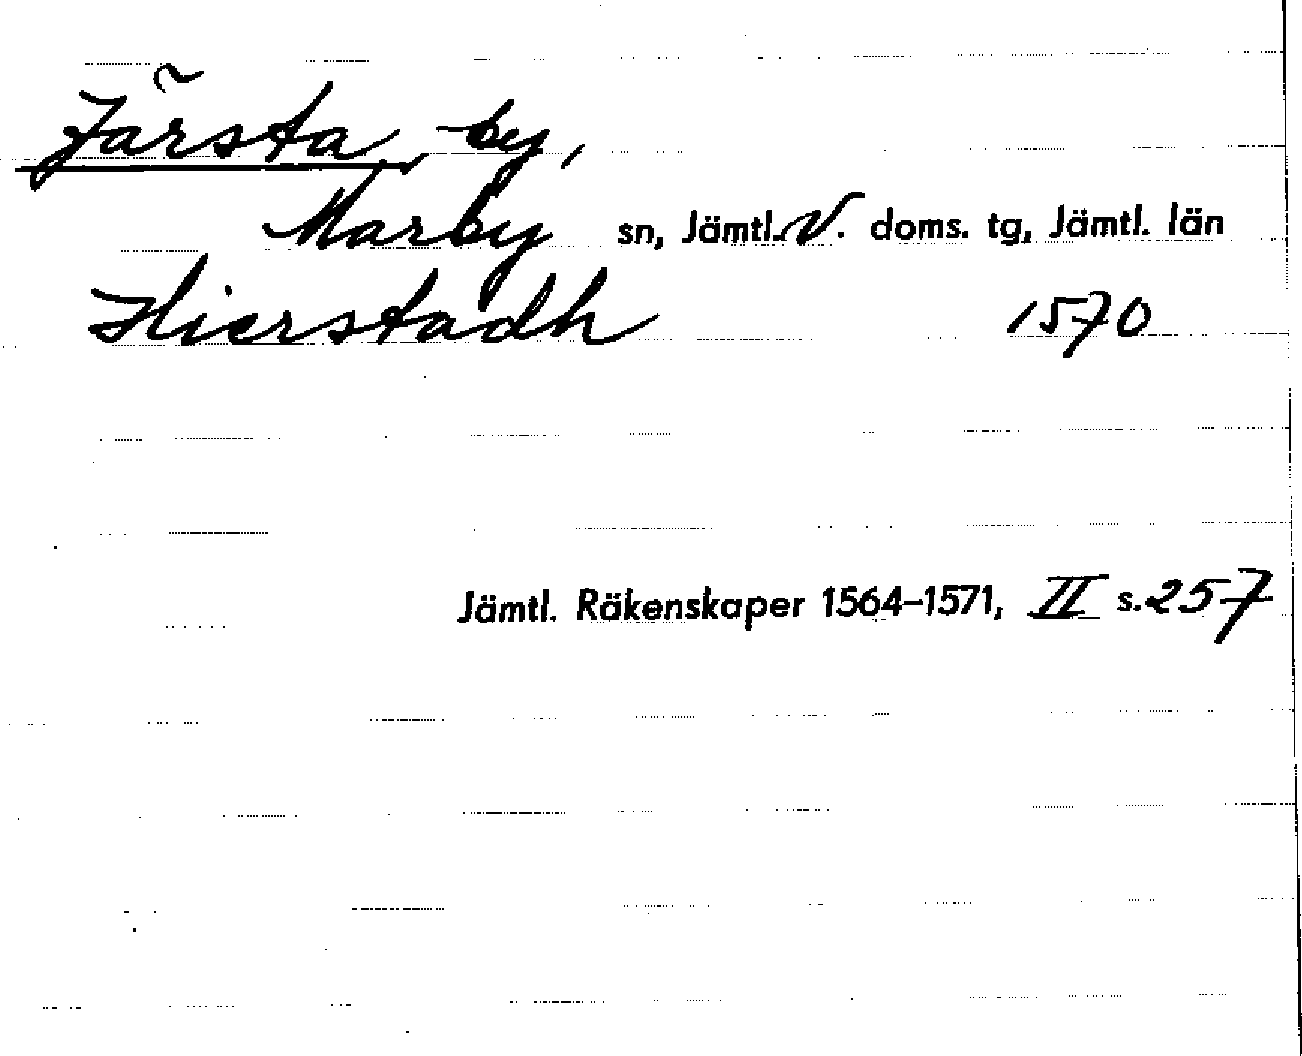 Järsta, by,
Marby sn, Jämtl. V. doms. tg, Jämtl. län
Hierstadh 1570
Jämtl. Räkenskaper 1564–1571, II s. 257